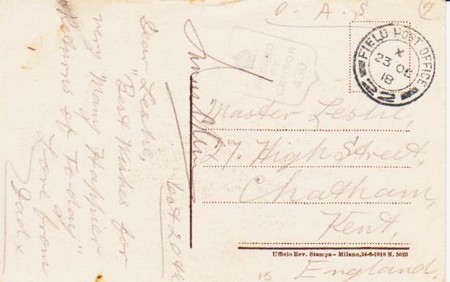 O. A. S
FIELD POST OFFICE
X
23 OC
18
Oct 20th
Dear Leslie
"Best Wishes for
very Many Happier
Returns of Today"
Love from
Dad x
Master Leslie,
27. High Street,
Chatham,
Kent,
England
Ufficio Rev. Stampa - Milano, 24-6-1918 N. 5023
15